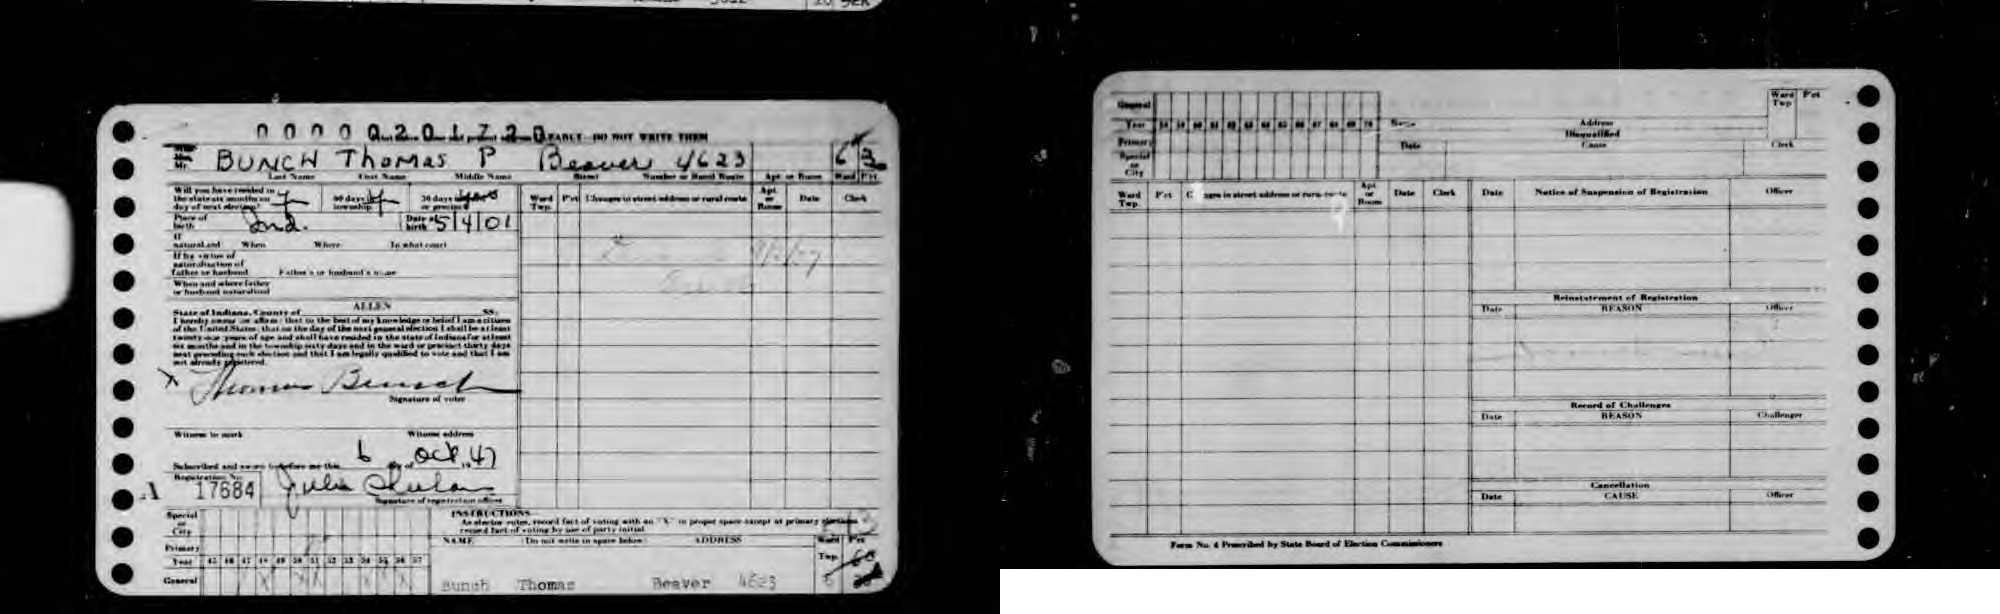 0 0 0 0 0 2 0 1 7 2 0 DO NOT WRITE THEM
Mr. BUNCH Thomas P Beaver 4623 6
Last Name First Name Middle Name Street Number or Rural Route Apt or Room Ward P'ct
Will you have resided in the state six months on day of next election? 60 days in township 30 days in precinct
Ward Twp. P'ct Changes in street address or rural route Apt or Room Date Clerk
Place of birth Ind. Date of birth 5/4/01
If naturalized When Where In what court
If by virtue of naturalization of father or husband Father's or husband's name
When and where father or husband naturalized
ALLEN
State of Indiana, County of SS:
I hereby swear (or affirm) that to the best of my knowledge or belief I am a citizen
of the United States; that on the day of the next general election I shall be at least
twenty-one years of age and shall have resided in the state of Indiana for at least
six months and in the township sixty days and in the ward or precinct thirty days
next preceding such election and that I am legally qualified to vote and that I am
not already registered.
X Thomas Bunch
Signature of voter
Witness to mark Witness address
Subscribed and sworn to before me this 6 day of Oct 1947
Registration No.
A 17684 Julia
Signature of registration officer
INSTRUCTIONS
As elector votes, record fact of voting with an "X" in proper space except at primary elections
record fact of voting by use of party initial.
Special or City
Primary
Year 45 46 47 48 49 50 51 52 53 54 55 56 57
General X X X X X
NAME (Do not write in space below) ADDRESS Ward Twp. P'ct
Bunch Thomas Beaver 4623 6
General
Year 58 59 60 61 62 63 64 65 66 67 68 69 70
Primary
Special or City
Name Address Ward Twp P'ct
Disqualified
Date Cause Clerk
Ward Twp. P'ct Changes in street address or rural route Apt or Room Date Clerk
Date Notice of Suspension of Registration Officer
Reinstatement of Registration
Date REASON Officer
Record of Challenges
Date REASON Challenger
Cancellation
Date CAUSE Officer
Form No. 4 Prescribed by State Board of Election Commissioners